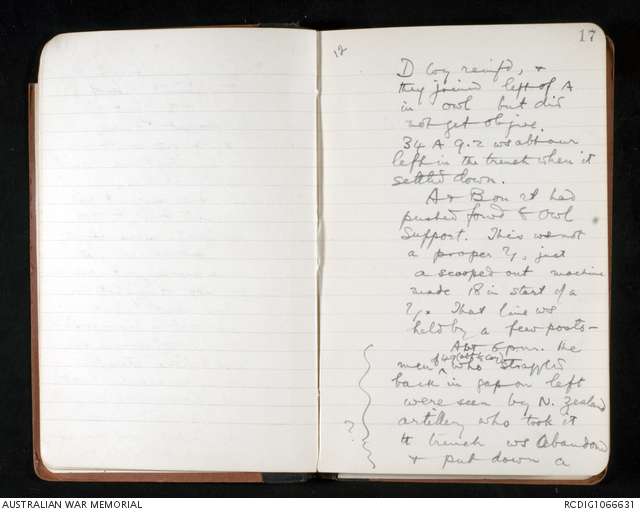 17
12
D Coy reinfd, &
they joined left of A
in Owl but did
not get objive.
34 A 9.2 ws abt our
left in the trench when it
settld down.
A & B on rt had
pushed forwd to Owl
Support. This ws not
a proper ?/, just
a scooped out machine
made 18 in start of a
?/. That line ws
held by a few posts –
Abt 6 pm. the
men who straggled
back in gap on left
were seen by N. Zealand
artillery who took it
tt trench ws abandond
& put down a
?
AUSTRALIAN WAR MEMORIAL
RCDIG1066631